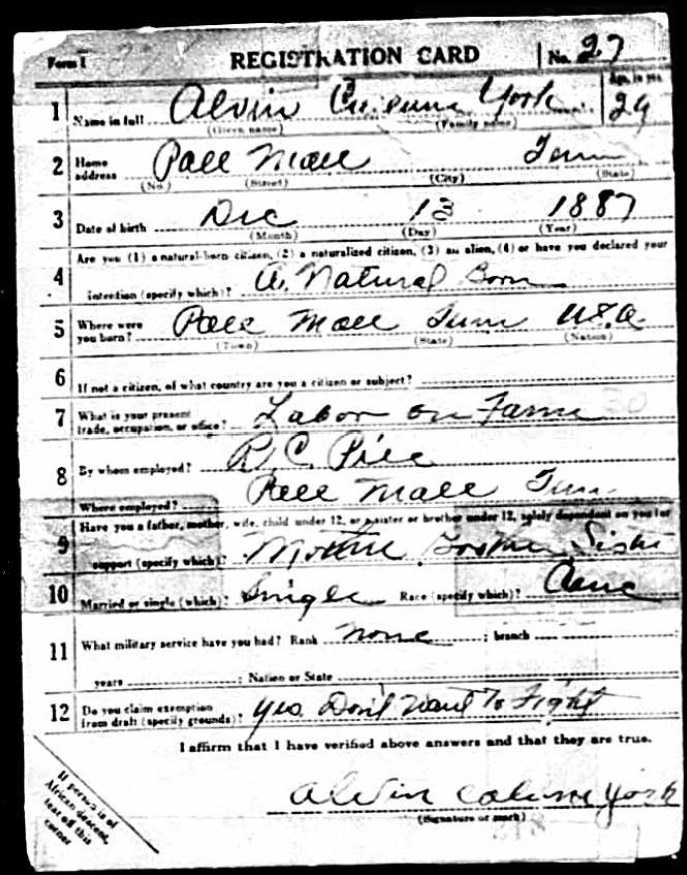 Form 1 REGISTRATION CARD No. 27
1 Name in full Alvin York Age, in yrs. 29
(Given name) (Family name)
2 Home address Pall Mall Tenn
(No.) (Street) (City) (State)
3 Date of birth Dec 13 1887
(Month) (Day) (Year)
Are you (1) a natural-born citizen, (2) a naturalized citizen, (3) an alien, (4) or have you declared your
4 intention (specify which)? A. Natural Born
5 Where were you born? Pall Mall Tenn U.S.A.
(Town) (State) (Nation)
6 If not a citizen, of what country are you a citizen or subject?
7 What is your present trade, occupation, or office? Labor on Farm
8 By whom employed? R. C. Pile
Where employed? Pall Mall Tenn
9 Have you a father, mother, wife, child under 12, or a sister or brother under 12, solely dependent on you for
support (specify which)? Mother, Sister
10 Married or single (which)? Single Race (specify which)?
11 What military service have you had? Rank none ; branch
years ; Nation or State
12 Do you claim exemption from draft (specify grounds)? Yes. Don't Want To Fight
I affirm that I have verified above answers and that they are true.
Alvin York
(Signature or mark)
If person is of
African descent,
tear off this
corner